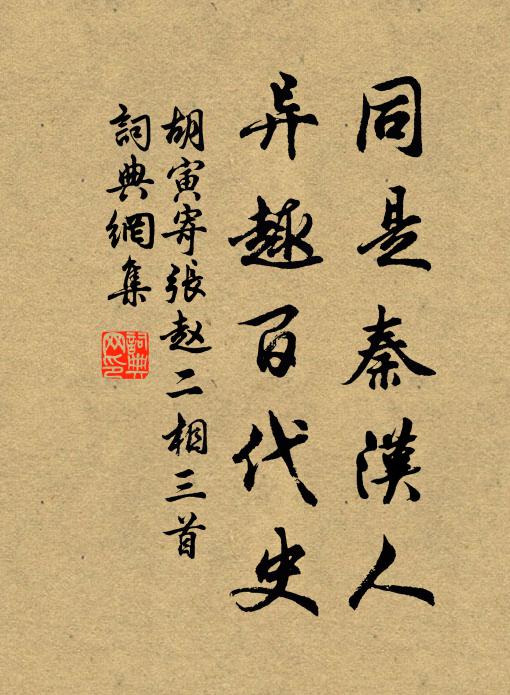 同是秦漢人
异趣百代史
胡寅寄張赵二相三首
詞典網集
詞典网印